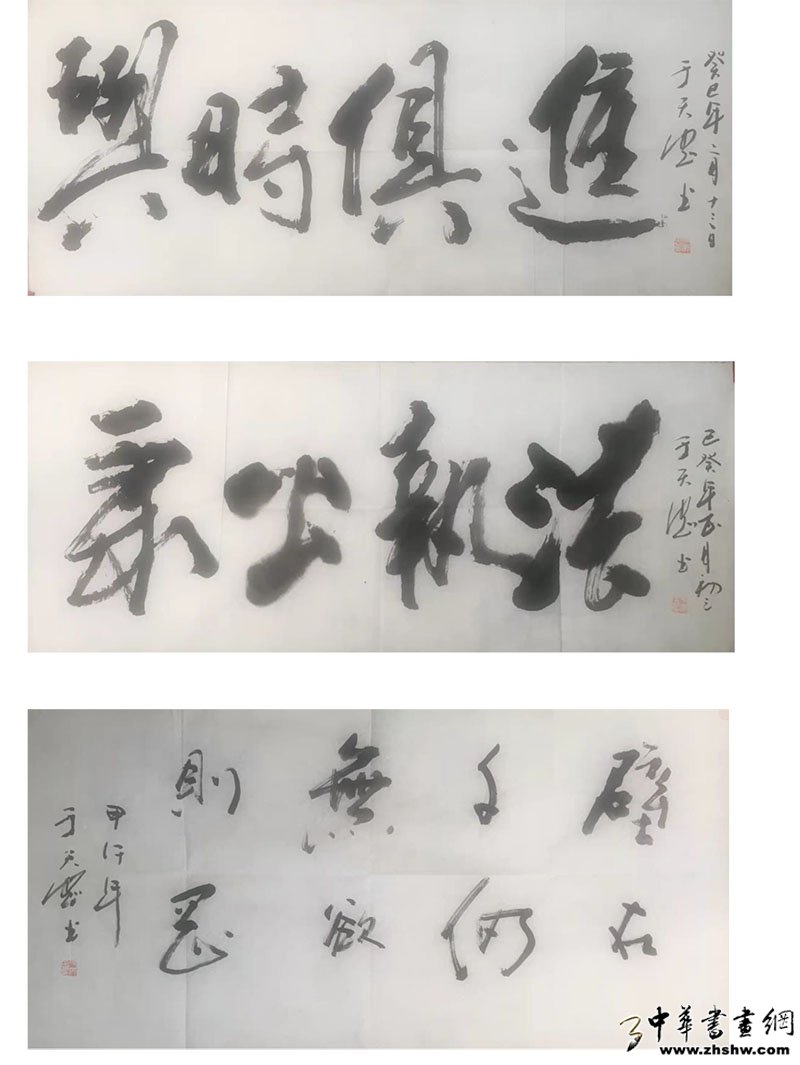 與時俱進
癸巳年二月十三日
于天 书
秉公執法
巳癸年正月初三
于天 书
壁立
千仞
無欲
則剛
甲午年
于天 书
中華書畫網
www.zhshw.com